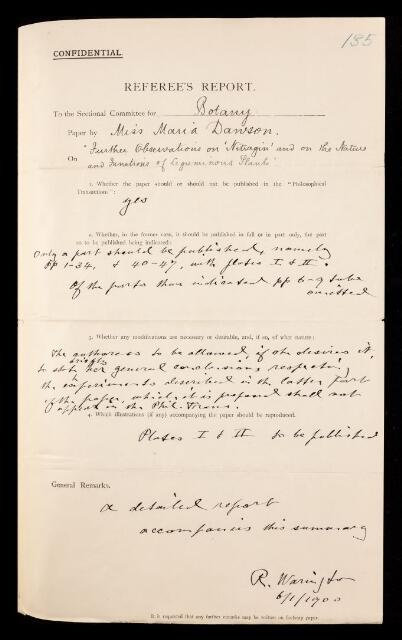 185
CONFIDENTIAL.
REFEREE'S REPORT.
To the Sectional Committee for Botany
Paper by Miss Maria Dawson.
"Further Observations on 'Nitragin' and on the Nature
On and Functions of Leguminous Plants"
1. Whether the paper should or should not be published in the "Philosophical
Transactions":
yes
2. Whether, in the former case, it should be published in full or in part only, the part
to be published being indicated:
Only a part should be published, namely
pp 1-34, & 40-47, with plates I & II.
Of the parts thus indicated pp 6-9 to be
omitted
3. Whether any modifications are necessary or desirable, and, if so, of what nature:
The authoress to be allowed, if she desires it,
to state briefly her general conclusions respecting
the experiments described in the latter part
of the paper, which it is proposed shall not
appear in the Phil. Trans.
4. Which illustrations (if any) accompanying the paper should be reproduced.
Plates I & II to be published
General Remarks.
A detailed report
accompanies this summary
R. Warington
6/1/1900
It is requested that any further remarks may be written on foolscap paper.